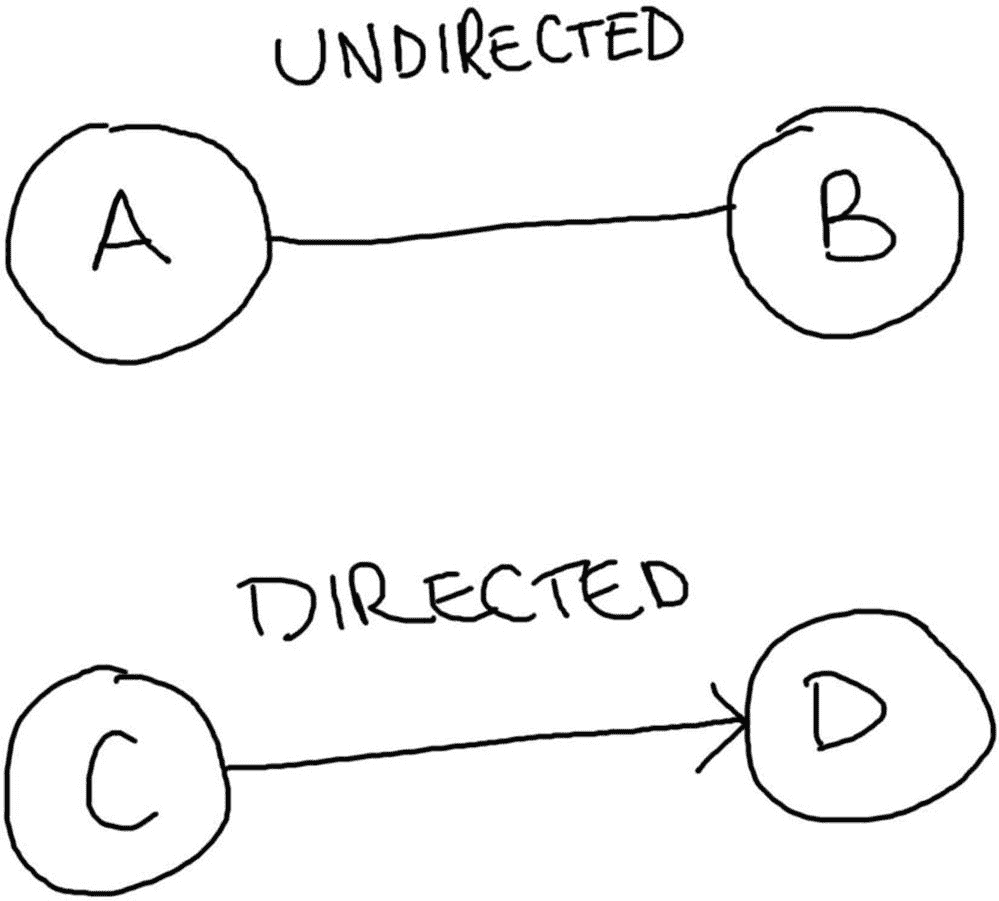 UNDIRECTED
A B
DIRECTED
C D